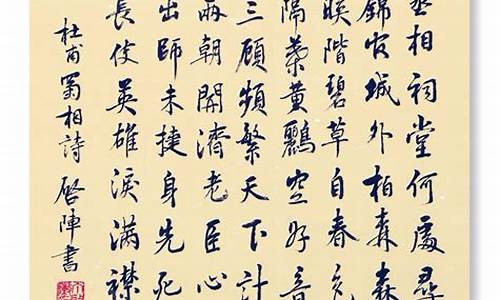 丞相祠堂何處尋
錦官城外柏森森
映階碧草自春色
隔葉黃鸝空好音
三顧頻繁天下計
兩朝開濟老臣心
出師未捷身先死
長使英雄淚滿襟
杜甫蜀相詩啓陣書